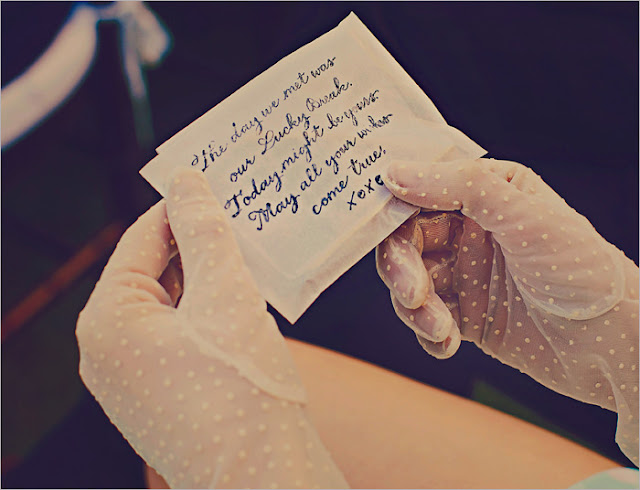 The day we met was
our Lucky Break.
Today might be yours
May all your wishes
come true.
xoxo